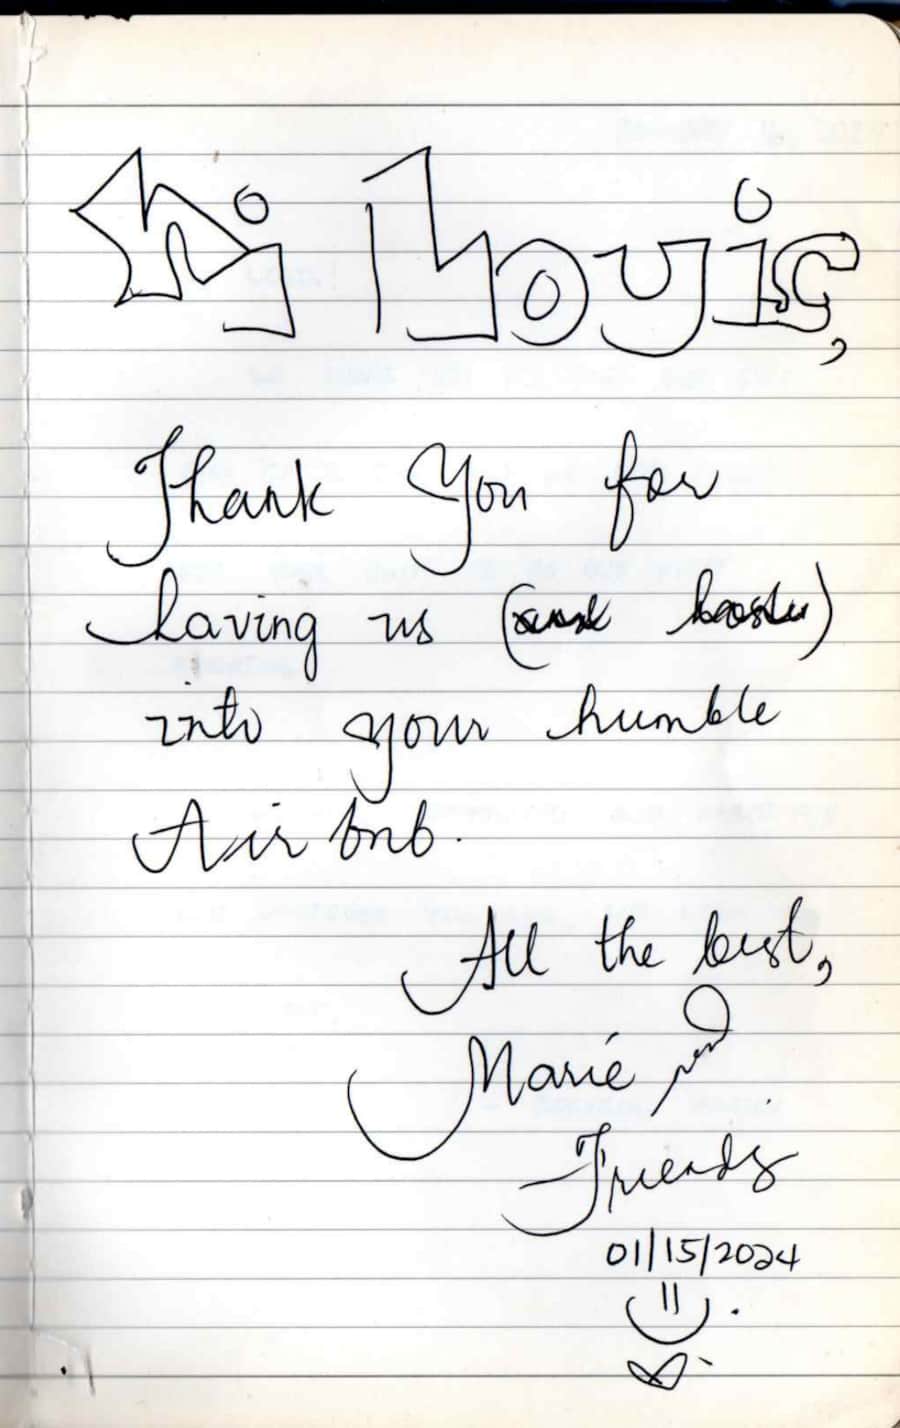 hi Louis,
Thank You for
having us (
)
into your humble
Airbnb.
All the best,
Marie and
Friends
01/15/2024